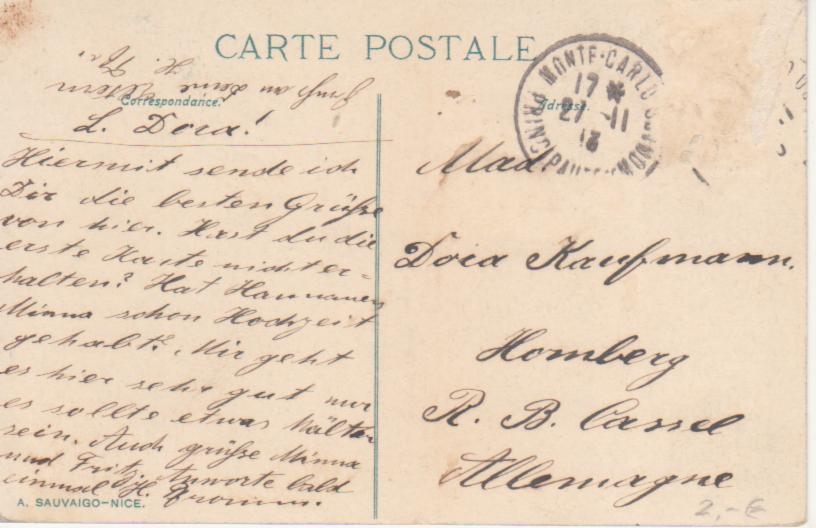 CARTE POSTALE
Correspondance.
Adresse.
MONTE-CARLO
17 *
27 - 11
13
Gruß an deine Eltern
H.
L. Dora!
Hiermit sende ich
Dir die besten Grüße
von hier. Hast du die
erste Karte nicht er-
halten? Hat
Minna schon Hochzeit
gehabt? Mir geht
es hier sehr gut nur
es sollte etwas kälter
sein. Auch grüße Minna
und Fritz. Anworte bald
einmal H.
Mad
Dora Kaufmann.
Homberg
R. B. Cassel
Allemagne
A. SAUVAIGO-NICE.
2,- €